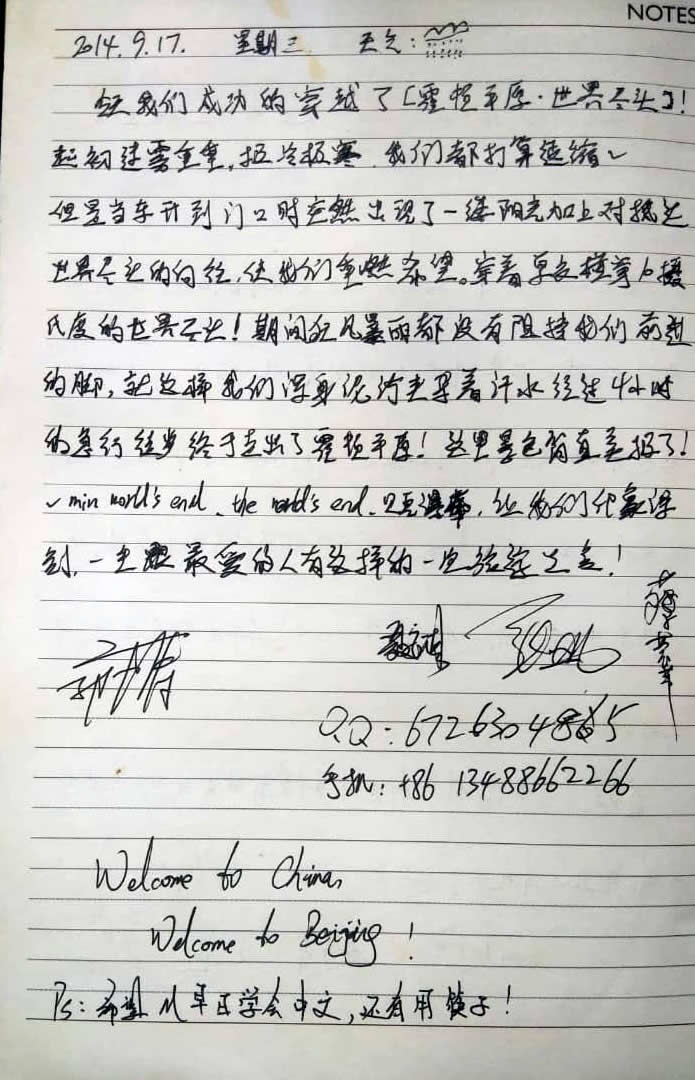 NOTES
2014.9.17. 星期三 天气:
我们成功的穿越了[霍顿平原·世界尽头]!
起初迷雾重重,极冷极寒,我们都打算退缩~
但是当车开到门口时突然出现了一缕阳光加上对抵达
世界尽头的向往,使我们重燃希望。穿着单衣 摄
氏度的世界尽头!期间狂风暴雨都没有阻挡我们前进
的脚,就这样我们浑身泥泞夹杂着汗水经过4小时
的急行徒步终于走出了霍顿平原!这里景色简直美极了!
min world's end, the world's end, 让我们印象深
刻,一定跟最爱的人有这样的一定
手机:+86 13488662266
Welcome to China,
Welcome to Beijing!
Ps:希望M早日学会中文,还有用筷子!